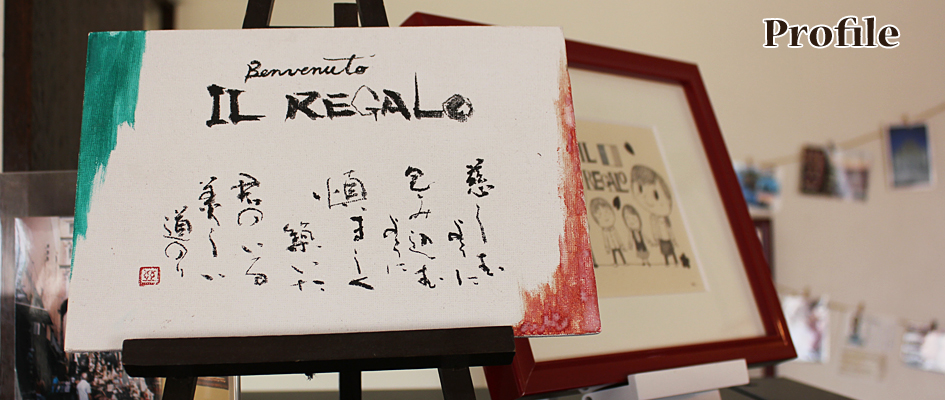 Profile
Benvenutó
IL REGALO
慈しむ
ように
包み込む
ように
慎ましく
築いた
君のいる
美しい
道のり
IL
REGALO